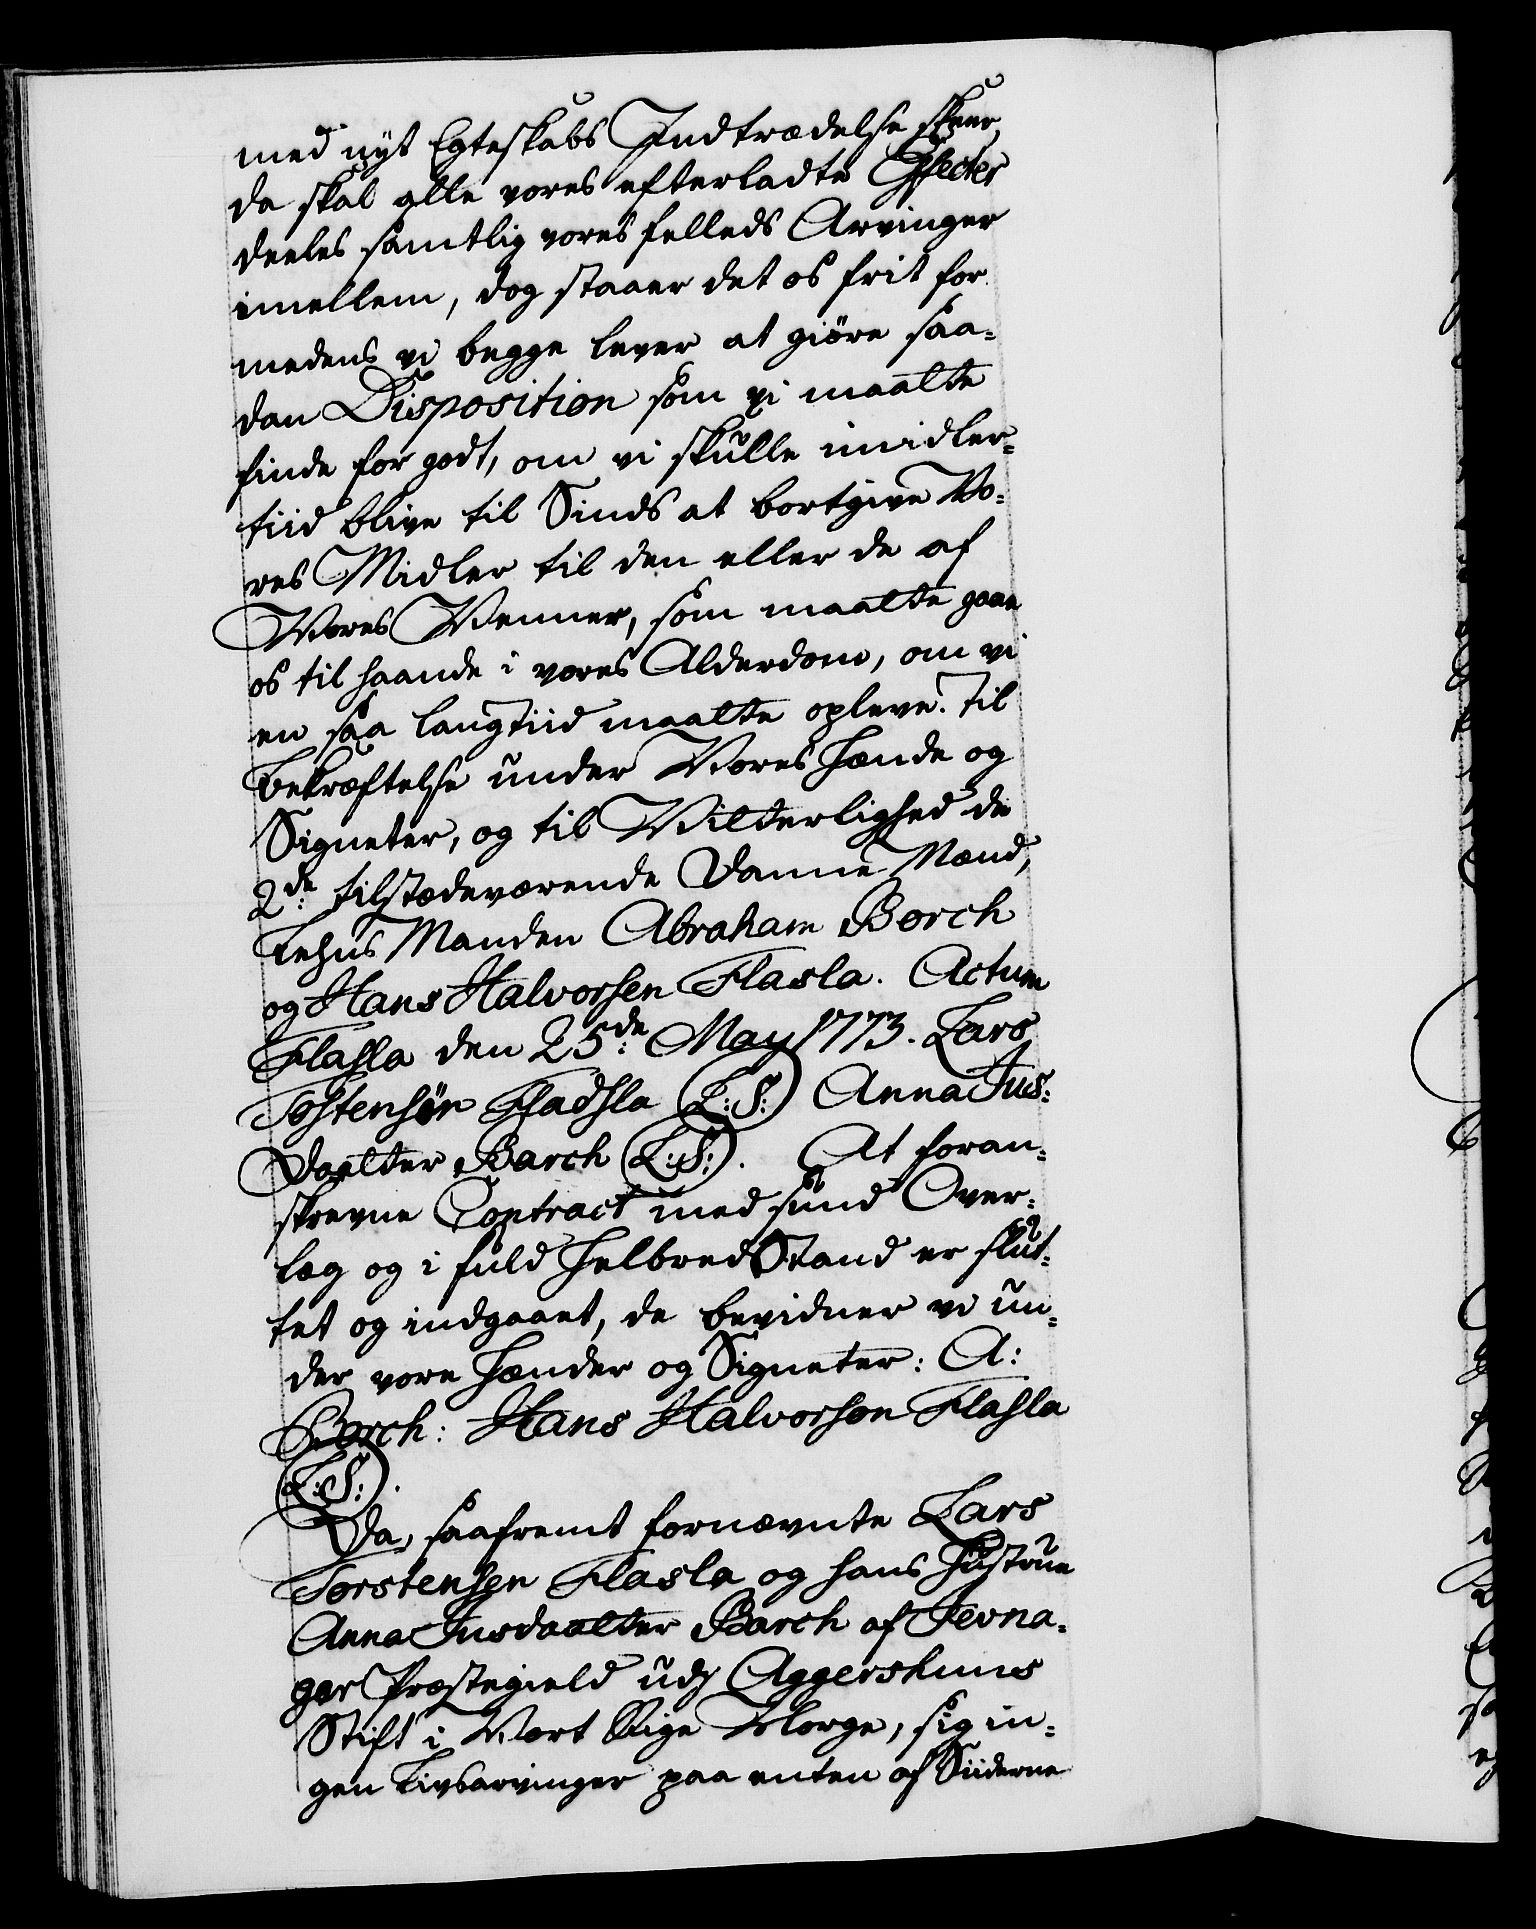 med nyt Egteskabs Indtrædelse skeer,
da skal alle vores efterladte Effecter
deeles samtlig vores felleds Arvinger
imellem, dog staaer det os frit for
medens vi begge lever at giöre saa-
dan Disposition som vi maatte
finde for godt, om vi skulle imidler-
tiid blive til Sinds at bortgive Vo-
res Midler til den eller de af
Vores Venner, som maatte gaae
os til haande i vores Alderdom, om vi
en saa lang Tiid maatte opleve. Til
Bekræftelse under Vores Hænde og
Signeter, og til Vitterlighed de
2de: tilstædeværende Danne Mænd,
Lehns Manden Abraham Borch
og Hans Halvorsen Flasla. Actum
Flasla den 25de: May 1773. Lars
Tostensön Fladsla (L:S:) Anna Jus:
Daatter Barch (L:S:). At foran-
skrevne Contract med sund Over-
læg og i fuld Helbred Stand er slut-
tet og indgaaet, de bevidner vi un-
der vore Hænder og Signeter: A:
Borch: Hans Halvorson Flasla
(L:S:).
Da, saafremt fornævnte Lars
Torstensen Flasla og hans Hustrue
Anna Jusdaatter Barch af Jevna-
ger Præstegield udj Aggershuus
Stift i Vort Rige Norge, sig in-
gen Livsarvinger paa enten af Siiderne